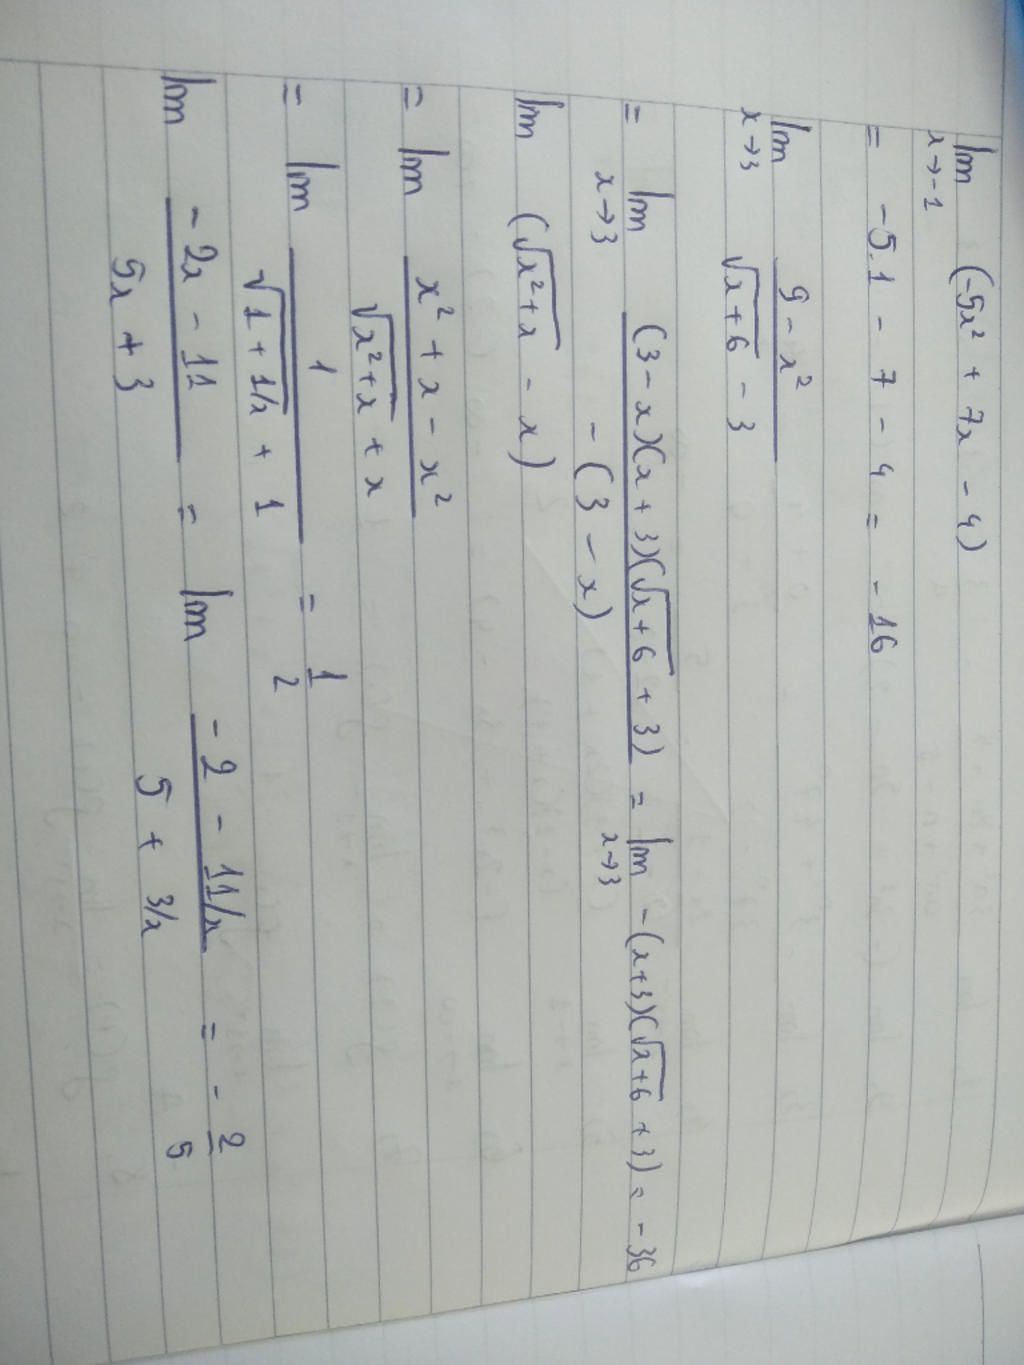 lim (-5x² + 7x - 4)
x→-1
= -5.1 - 7 - 4 = -16
lim 9 - x² / √x+6 - 3
x→3
= lim (3-x)(x+3)(√x+6 + 3) / -(3-x) = lim -(x+3)(√x+6 + 3) = -36
x→3 x→3
lim (√x²+x - x)
= lim x² + x - x² / √x²+x + x
= lim 1 / √1+1/x + 1 = 1/2
lim -2x - 11 / 5x + 3 = lim -2 - 11/x / 5 + 3/x = -2/5